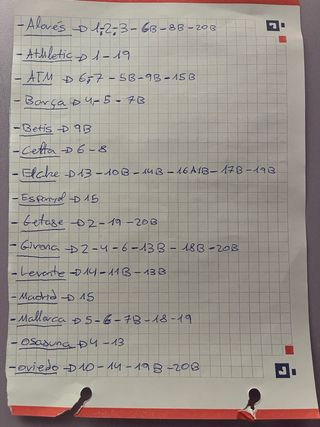 - Alavés → 1,2,3 - 6B - 8B - 20B
- Athletic → 1 - 19
- ATM → 6,7 - 5B - 9B - 15B
- Barça → 4,5 - 7B
- Betis → 9B
- Celta → 6 - 8
- Elche → 13 - 10B - 14B - 16A1B - 17B - 19B
- Espanyol → 15
- Getafe → 2 - 19 - 20B
- Girona → 2 - 4 - 6 - 13B - 18B - 20B
- Levante → 14 - 11B - 13B
- Madrid → 15
- Mallorca → 5 - 6 - 7B - 18 - 19
- Osasuna → 4 - 13
- Oviedo → 10 - 14 - 19B - 20B